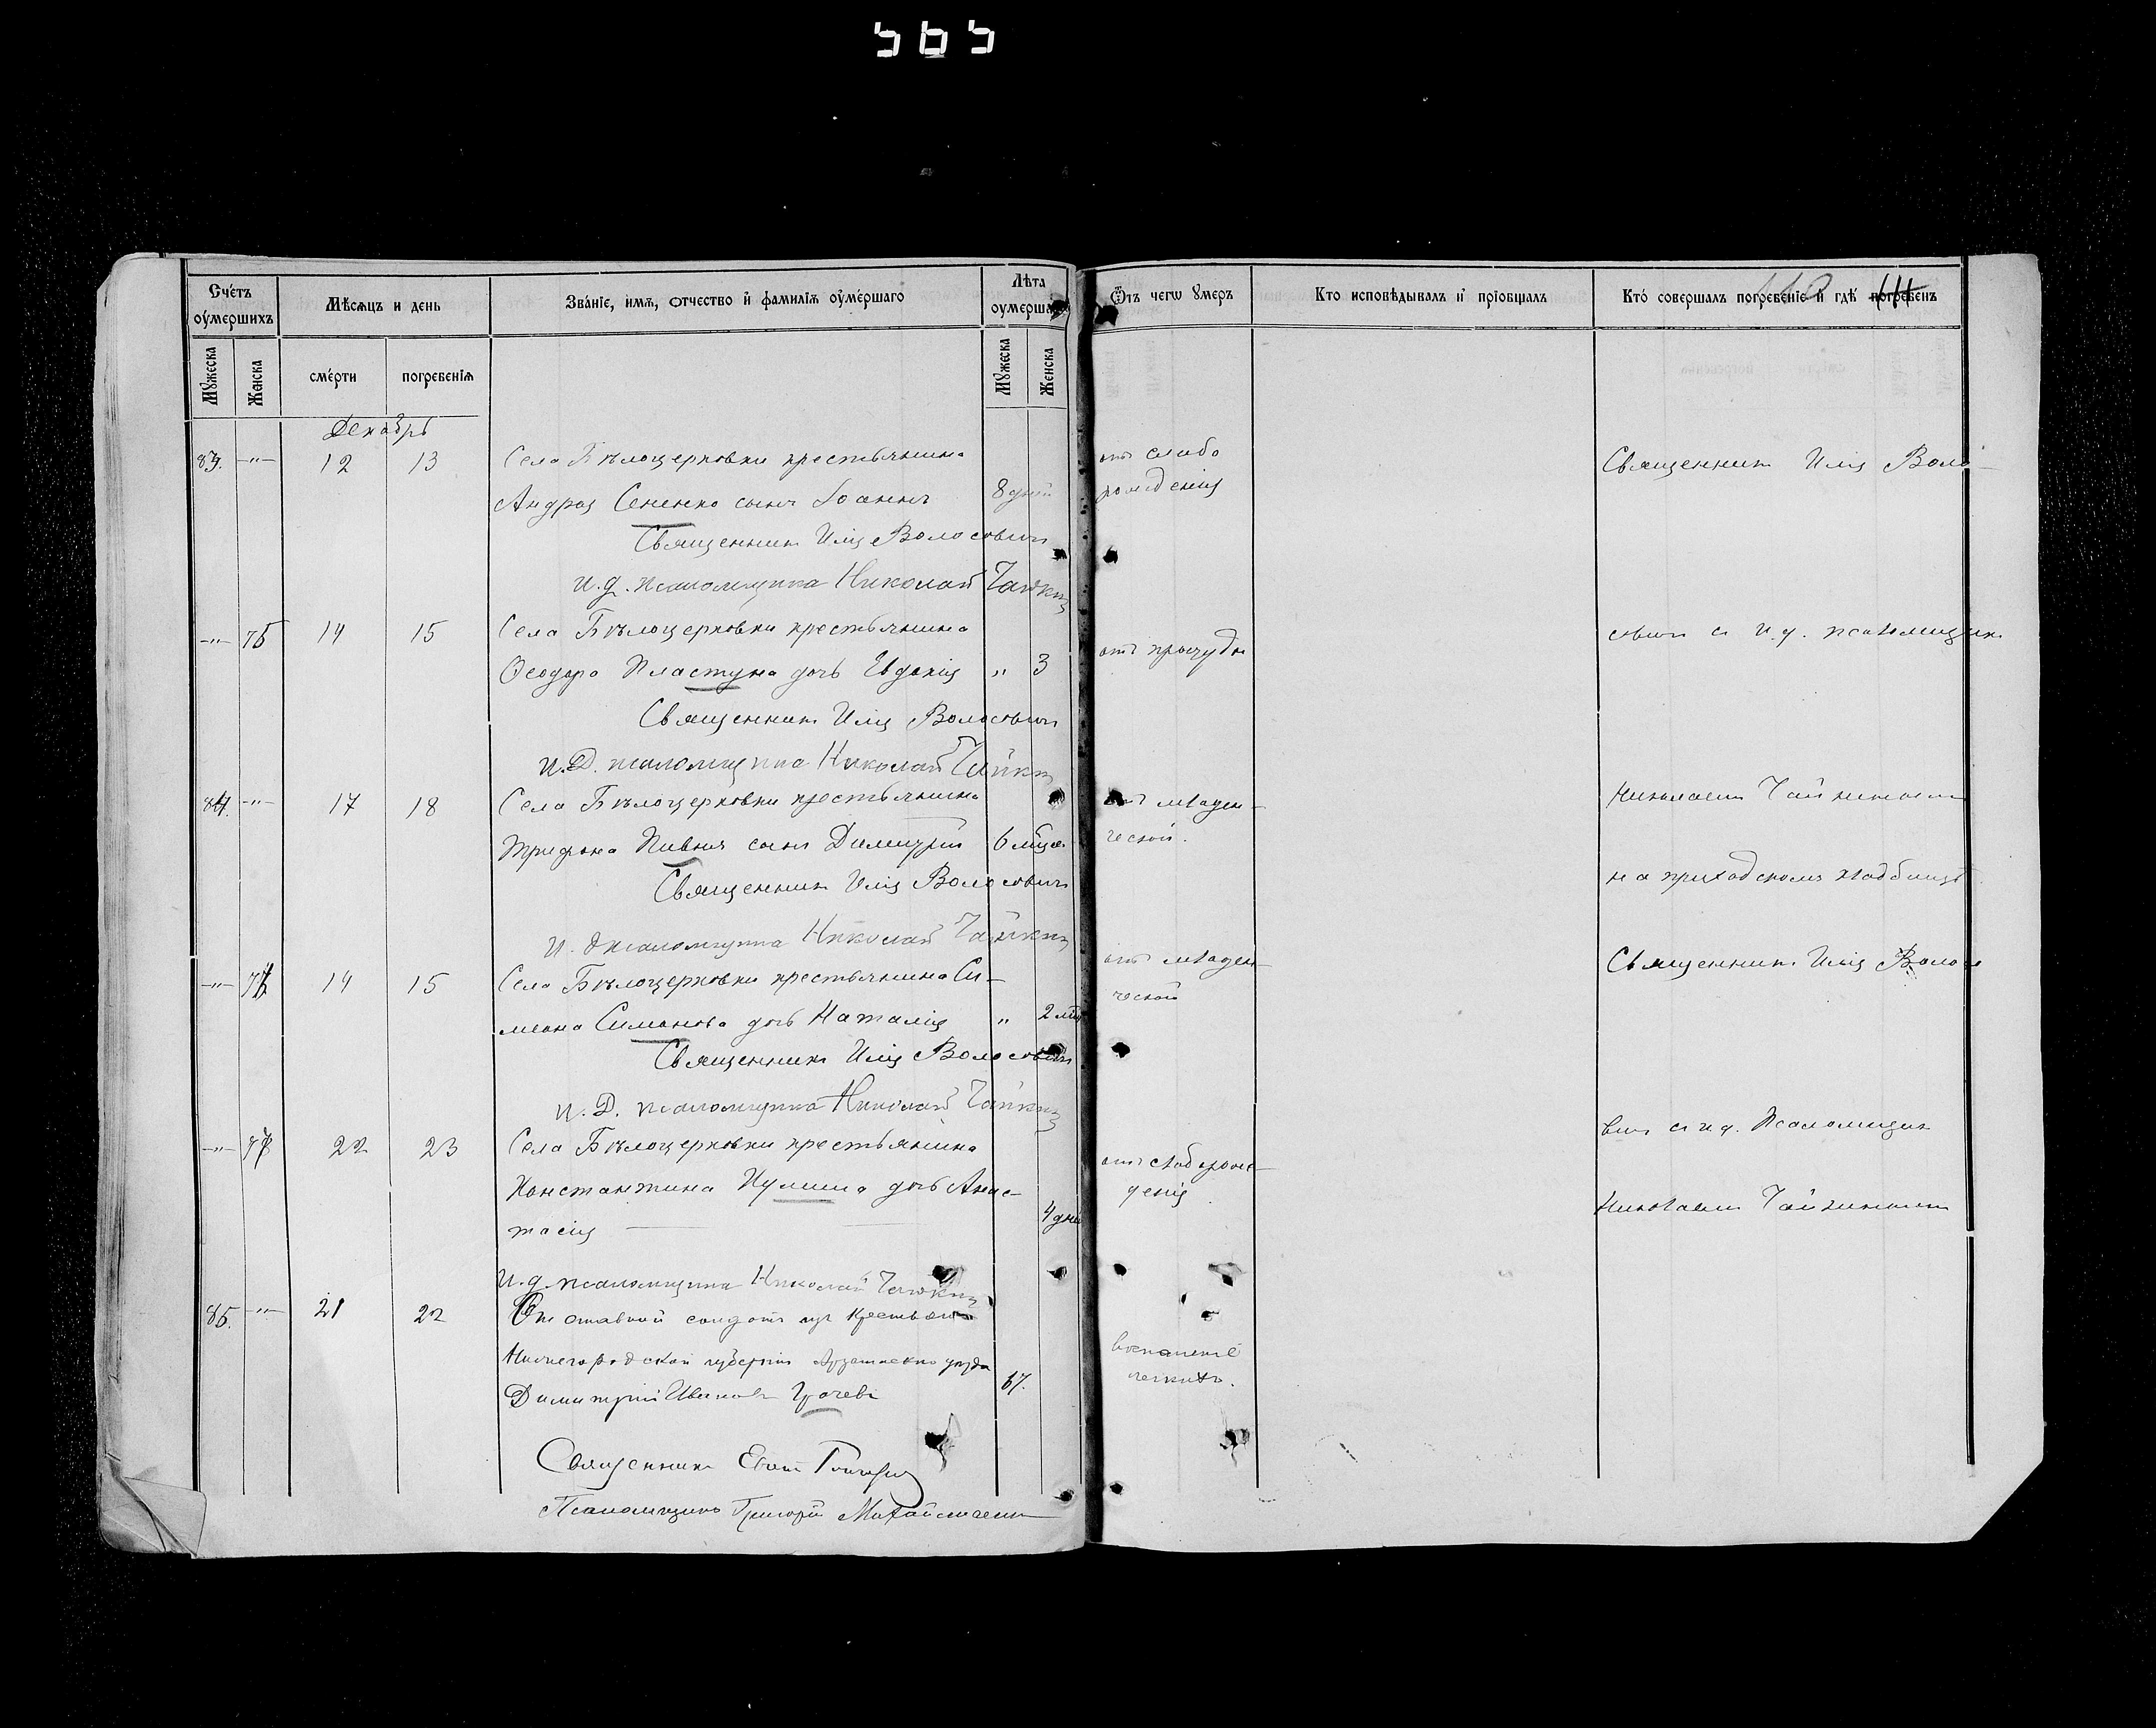 565
Счетъ оумершихъ
Мѣсяцъ и день
Званіе, имя, отчество и фамилія оумершаго
Лѣта оумерша
Отъ чегѡ умеръ
Кто исповѣдывалъ и пріобщалъ
Кто совершалъ погребеніе и гдѣ погребенъ
Мужеска
Женска
смерти
погребенія
Мужеска
Женска
Декабрь
83. —"— 12 13 Села Бѣлоцерковки крестьянина
Андрея Сененко сынъ Іоаннъ 8 дней
отъ слабо
рожденія
Священникъ Илія Воло-
Священникъ Илія Волосовичъ
И. д. псаломщика Николай Чайкинъ
—"— 75 14 15 Села Бѣлоцерковки крестьянина
Ѳеодора Пластуна дочь Евдокія " 3
отъ простуды
совичъ съ и. д. псаломщика
Священникъ Илія Волосовичъ
И. Д. псаломщика Николай Чайкинъ
84. —"— 17 18 Села Бѣлоцерковки крестьянина
Трифона Пивня сынъ Димитрій 6 мѣся
отъ младен-
ческой.
Николаемъ Чайкинымъ
на приходскомъ кладбищѣ
Священникъ Илія Волосовичъ
И. д. псаломщика Николай Чайкинъ
—"— 14 15 Села Бѣлоцерковки крестьянина Си-
меона Симонова дочь Наталія " 2 мѣс
отъ младен-
ческой
Священникъ Илія Волосо
Священникъ Илія Волосовичъ
И. Д. псаломщика Николай Чайкинъ
—"— 22 23 Села Бѣлоцерковки крестьянина
Константина дочь Анас-
тасія 4 дня
отъ слаборож-
денія
вичъ съ и. д. Псаломщик
Николаемъ Чайкинымъ
И. д. псаломщика Николай Чайкинъ
85. —"— 21 22 Отставной солдатъ изъ крестьянъ
Нижегородской губерніи уѣзда
Димитрій Ивановъ Грачевъ 67.
воспаленіе
легкихъ.
Священникъ
Псаломщикъ Григорій